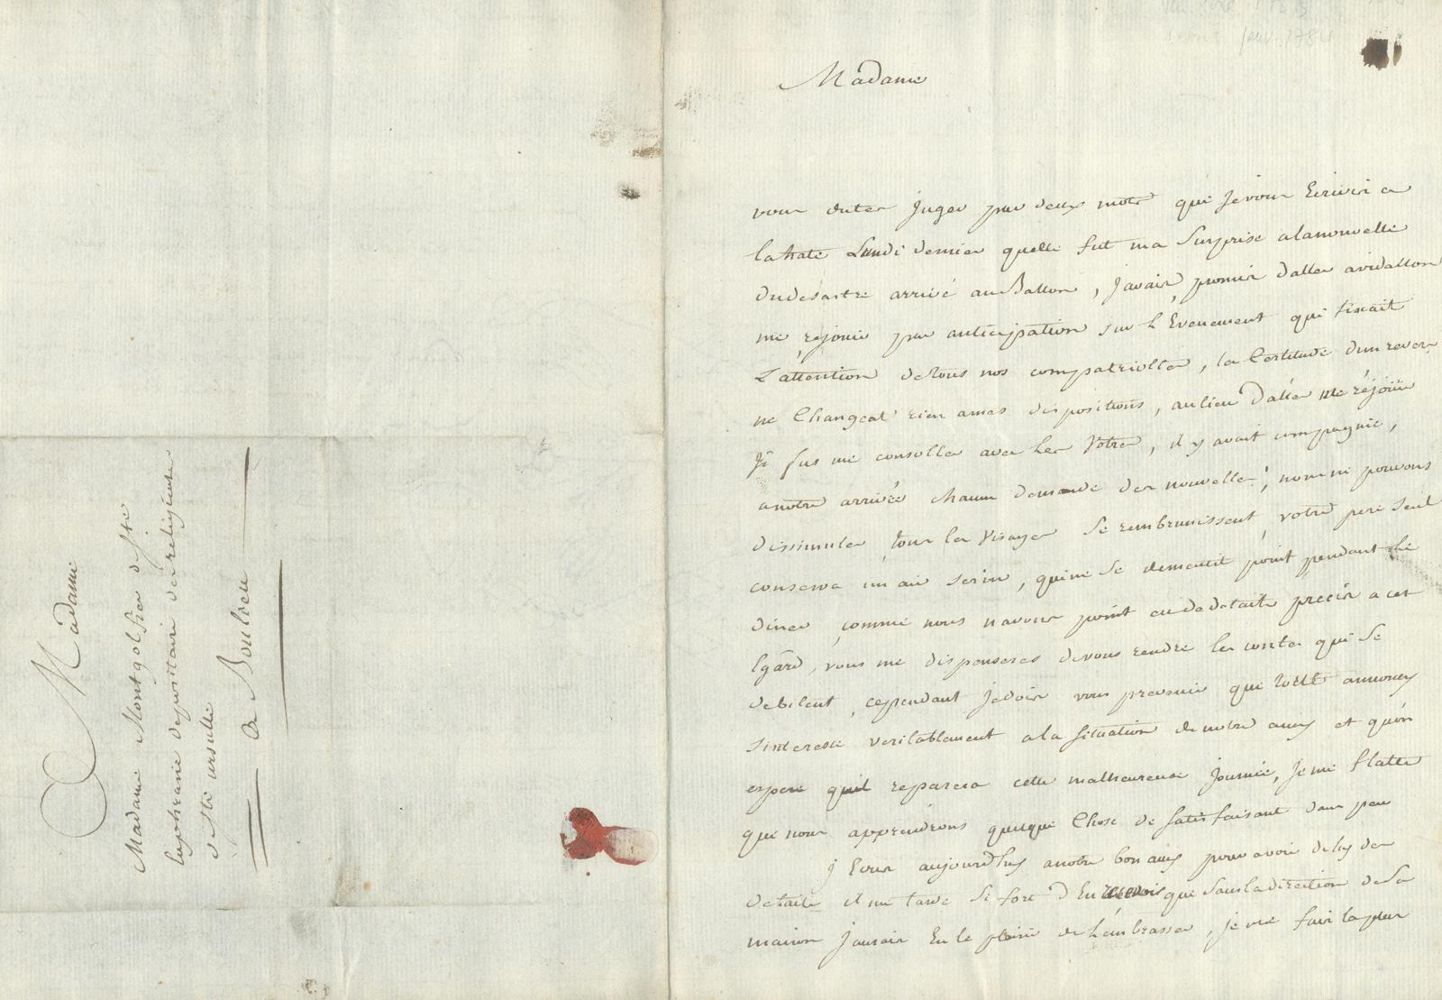 Madame
Madame Montgolfier de Ste
Euphrasie depositaire des religieuses
de Ste ursulle
a Boulieu
Madame
vous dutes juger par deux mots que je vous Ecrivis a
la hate Lundi dernier quelle fut ma Surprise a la nouvelle
du desastre arrivé au Ballon, j'avais promis daller a vidallon
me rejouir par anticipation sur l Evenement qui fixait
L'attention de tous nos compatriottes, la Certitude dun revers
ne Changeat rien a mes dispositions, au lieu D'aller me réjouir
je fus me consoller avec les Votres, il y avait compagnie,
a notre arrivée chacun demande des nouvelles, nous ne pouvons
dissimuler, tous les Visages se rembrunissent, votre pere seul
conserva un air serin, qui ne se dementit point pendant le
diner, comme nous n'avons point eu de details precis a cet
Egard, vous me dispenseres de vous rendre les contes qui se
debitent, cependant je dois vous prevenir que tout annonay
s'interesse veritablement a la situation de notre amy et qu'on
espere quil reparera cette malheureuse journée, je me flatte
que nous apprendrons quelque Chose de satisfaisant dans peu
j Ecris aujourd'huy a notre bon amy pour avoir de luy des
details il me tarde si fort D En que sous la direction de sa
maison j'aurais Eu le plaisir de l'embrasser, je me fais la peur